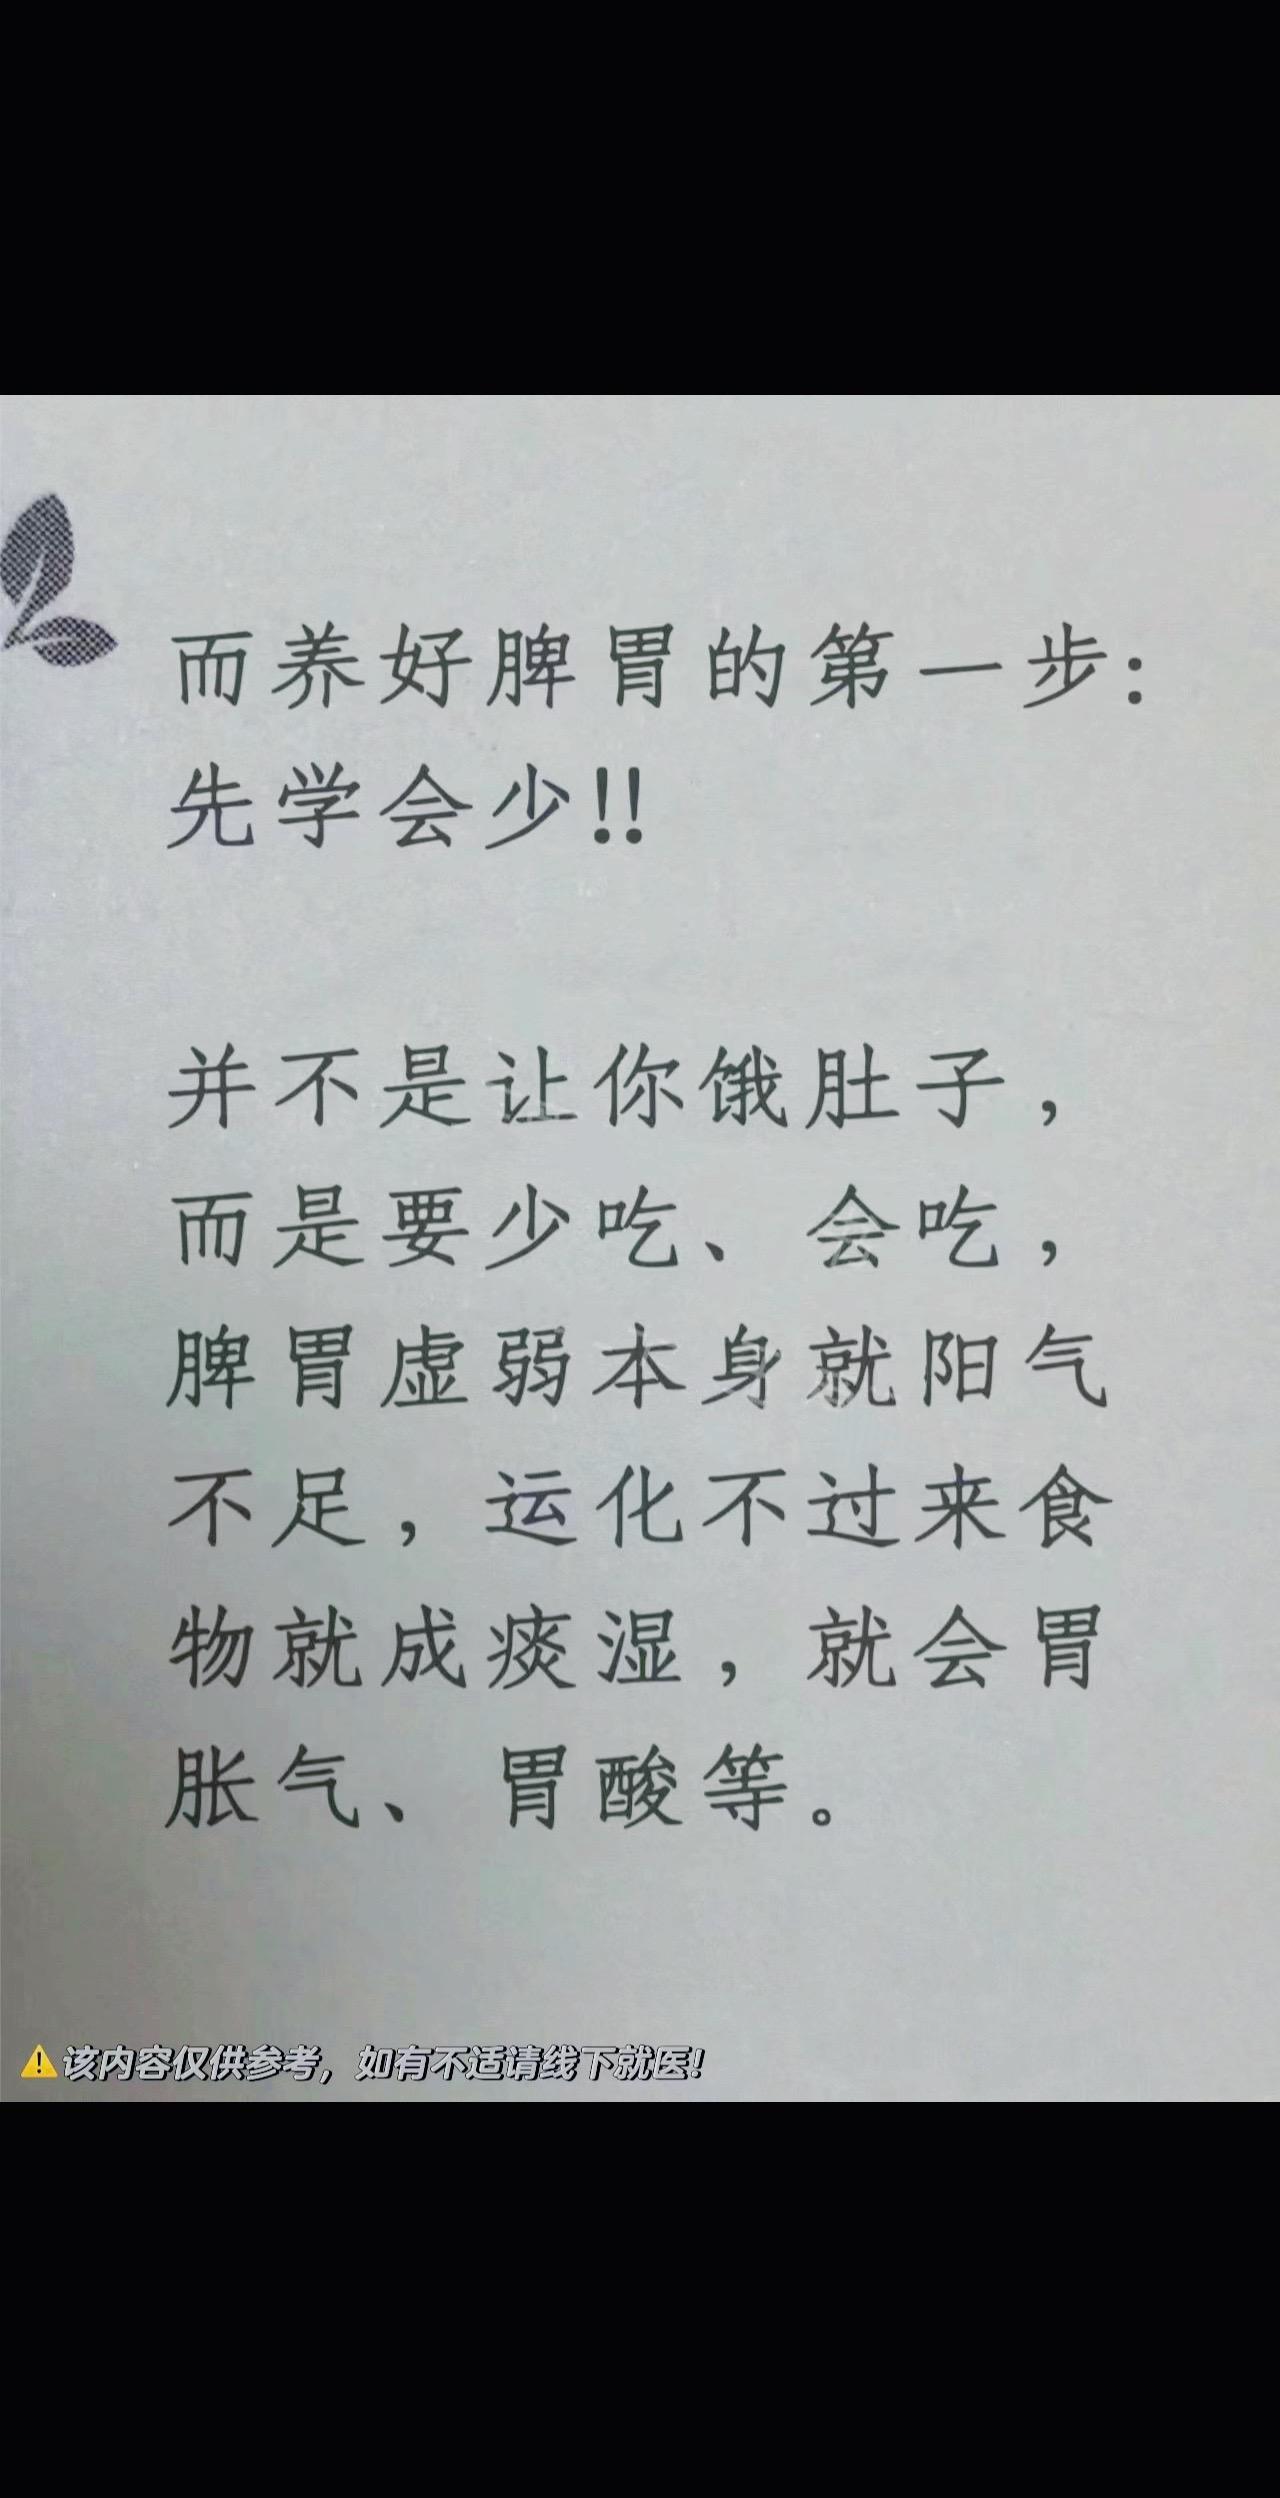 而养好脾胃的第一步:
先学会少!!
并不是让你饿肚子,
而是要少吃、会吃,
脾胃虚弱本身就阳气
不足,运化不过来食
物就成痰湿,就会胃
胀气、胃酸等。
⚠️该内容仅供参考,如有不适请线下就医!